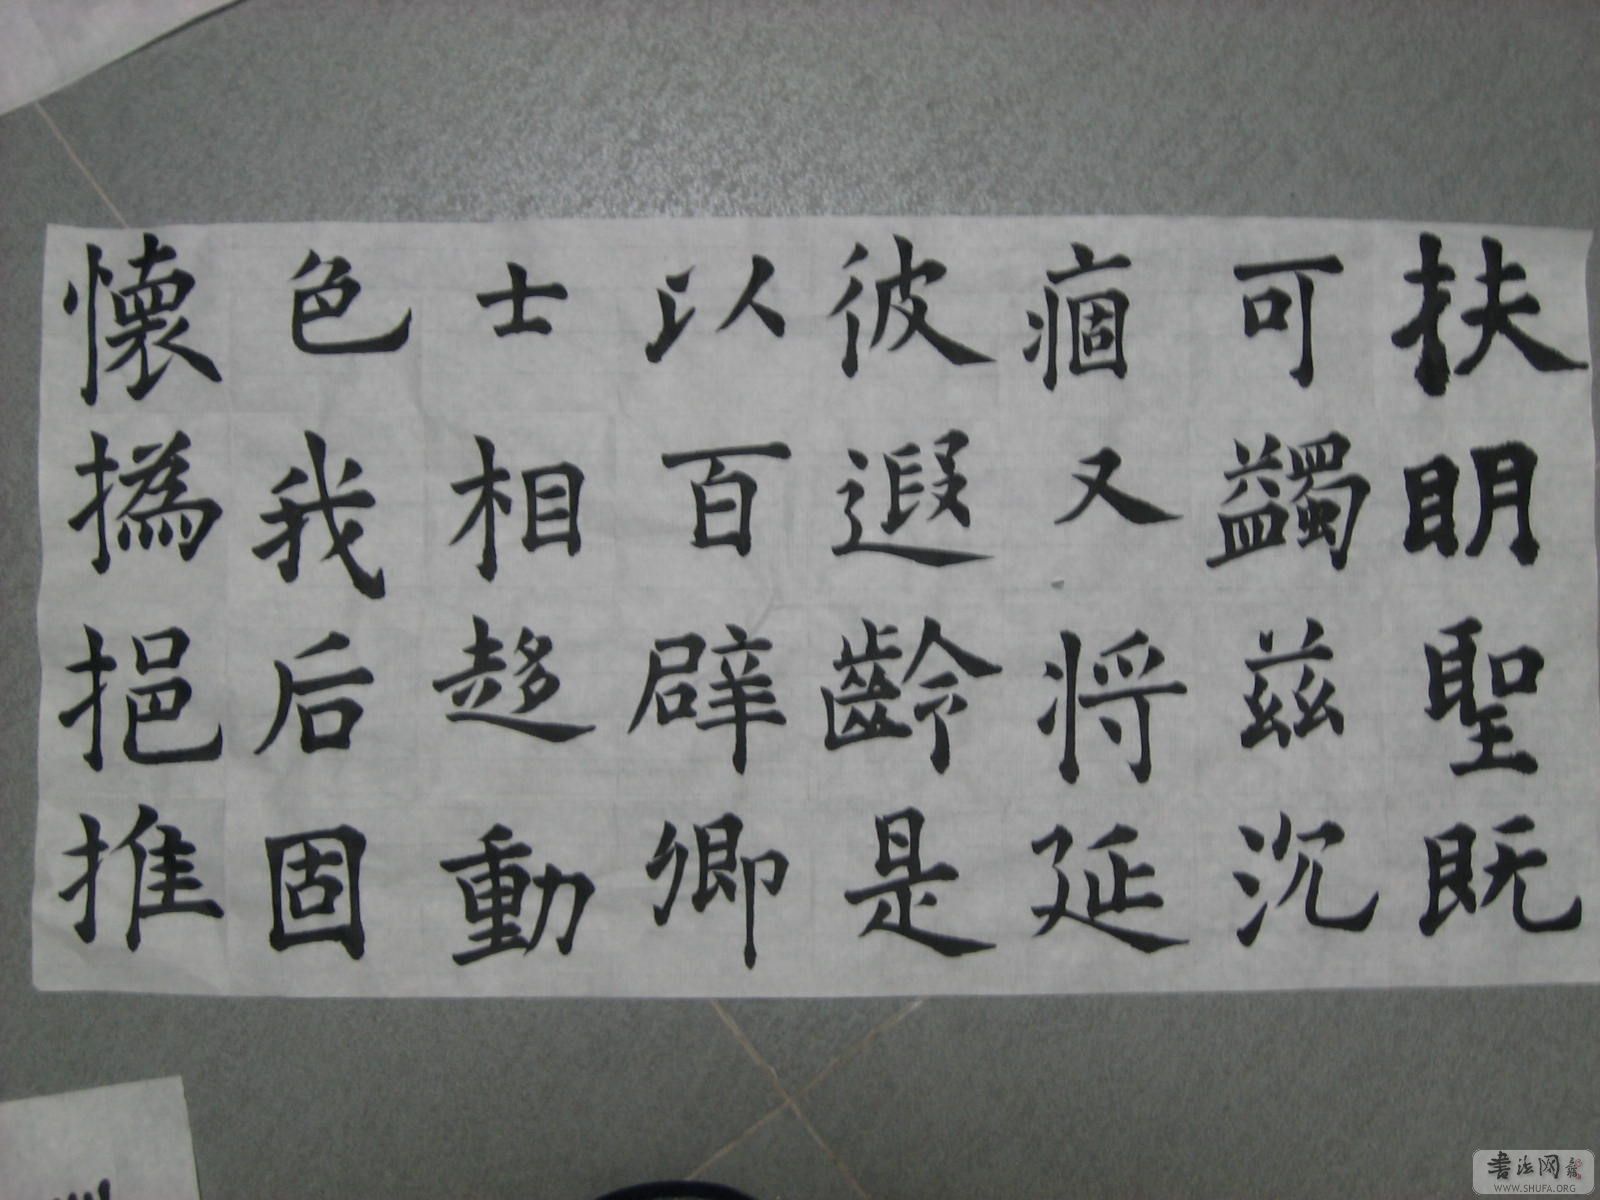 扶眀聖既
可蠲兹沉
痼又将延
彼遐齡是
以百辟卿
士相趍動
色我后固
懷撝挹推
書法网
WWW.SHUFA.ORG